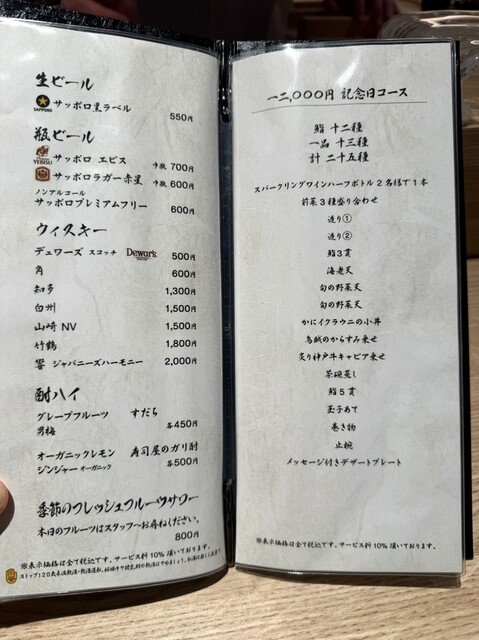 生ビール
SAPPORO
サッポロ黒ラベル
550円
瓶ビール
YEBISU
サッポロ ヱビス 中瓶 700円
サッポロラガー赤星 中瓶 600円
ノンアルコール
サッポロプレミアムフリー 600円
ウィスキー
デュワーズ スコッチ Dewar's 500円
角 600円
知多 1,300円
白州 1,500円
山崎 NV 1,500円
竹鶴 1,800円
響 ジャパニーズハーモニー 2,000円
酎ハイ
グレープフルーツ すだち
男梅 各450円
オーガニックレモン 寿司屋のガリ酎
ジンジャー オーガニック 各500円
季節のフレッシュフルーツサワー
本日のフルーツはスタッフへお尋ねください。
800円
※表示価格は全て税込です。サービス料10%頂いております。
一二,〇〇〇円 記念日コース
鮨 十二種
一品 十三種
計 二十五種
スパークリングワインハーフボトル2名様で1本
前菜3種盛り合わせ
造り①
造り②
鮨3貫
海老天
旬の野菜天
旬の野菜天
かにイクラウニの小丼
鳥賊のからすみ乗せ
炙り神戸牛キャビア乗せ
茶碗蒸し
鮨5貫
玉子あて
巻き物
止椀
メッセージ付きデザートプレート
※表示価格は全て税込です。サービス料10%頂いております。